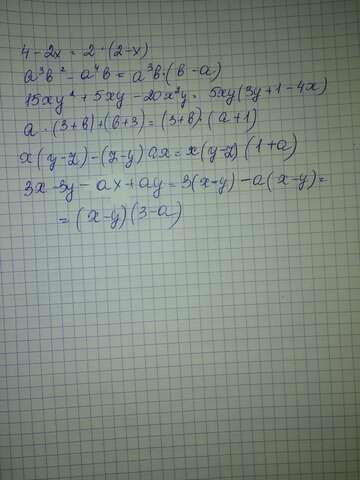 4 - 2x = 2 · (2 - x)
a³в² - a⁴в = a³в · (в - a)
15xy² + 5xy - 20x²y = 5xy(3y + 1 - 4x)
a · (3 + в) + (в + 3) = (3 + в) · (a + 1)
x(y - z) - (z - y) ax = x(y - z) (1 + a)
3x - 3y - ax + ay = 3(x - y) - a(x - y) =
= (x - y) (3 - a)